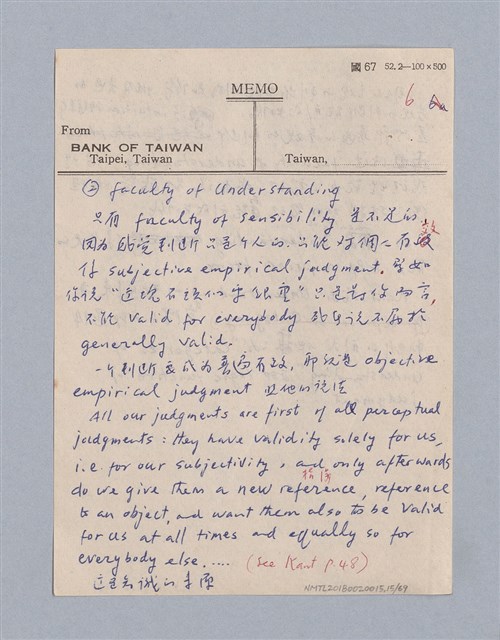 國 67 52.2—100×500
MEMO
6
From
BANK OF TAIWAN
Taipei, Taiwan
Taiwan,
② faculty of Understanding
只有 faculty of sensibility 是不足的,
因為 感覺判斷只是個人的.只能對個人有效
作 subjective empirical judgment. 譬如
你說 "這塊石頭似乎很重" 只是對你而言,
不能 valid for everybody 或者說不屬於
generally valid.
一個判斷要成為普遍有效, 那就是 objective
empirical judgment 照他的說法
All our judgments are first of all perceptual
judgments: they have validity solely for us,
i.e. for our subjectivity, and only afterwards
do we give them a new reference, reference
to an object, and want them also to be valid
for us at all times and equally so for
everybody else..... (See Kant p.48)
這是知識的
NMTL20180020015.15/69